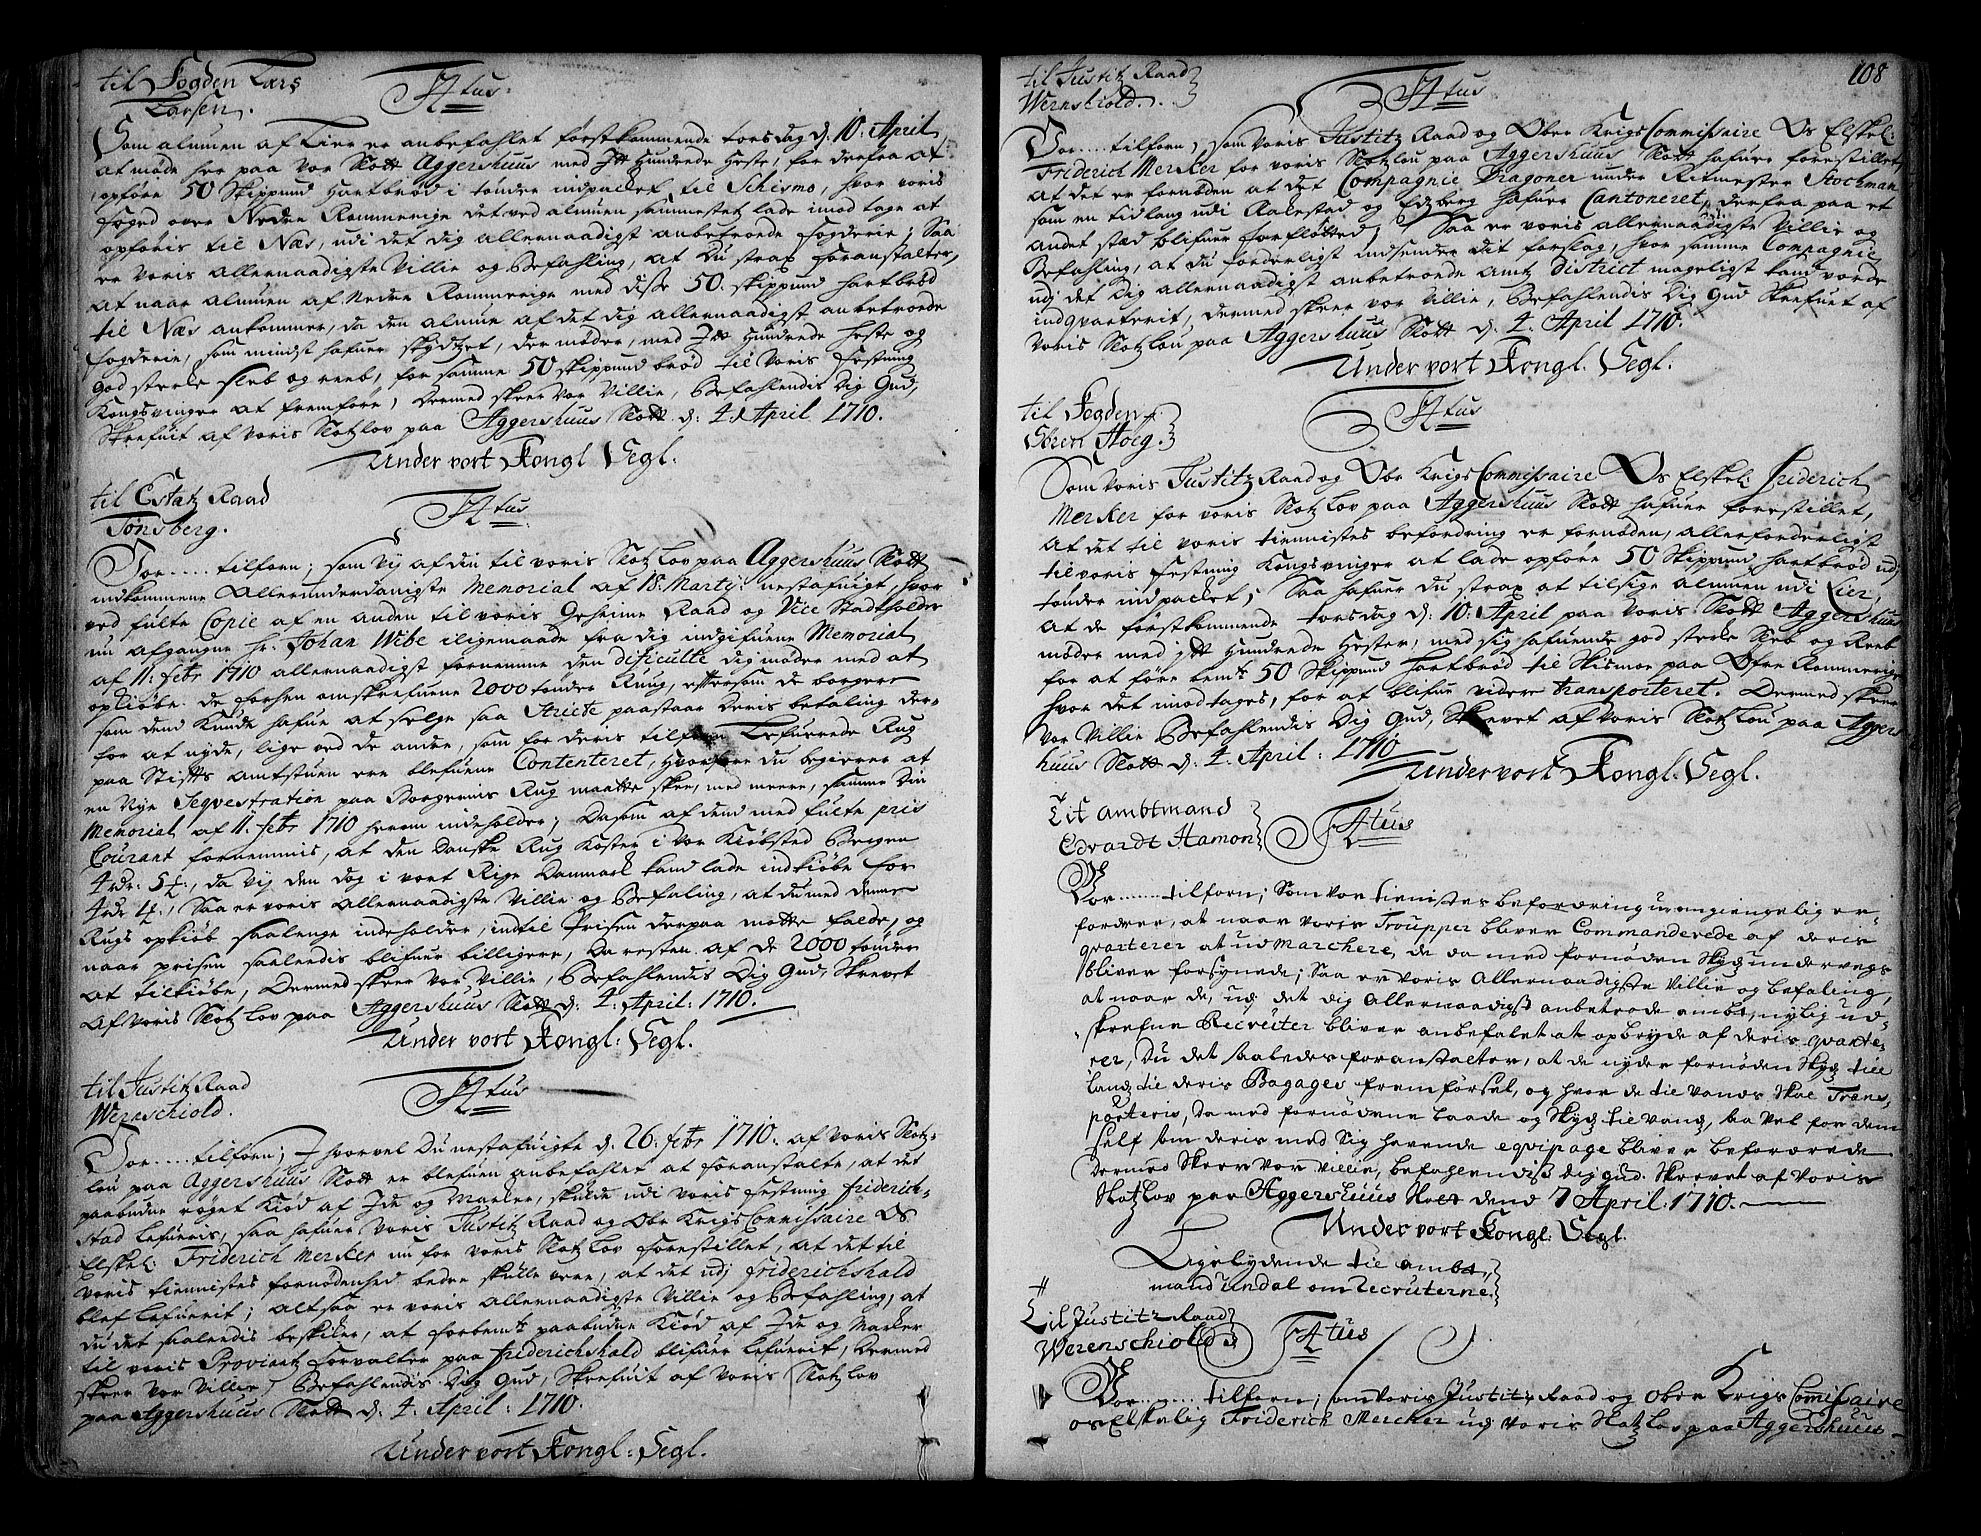 til Fogden Lars
Larsen.
F4tus
Som almuen af Lier er anbefahlet förstkommende torsdag d: 10: April,
at möde her paa vor Slott Aggershuus med Hundrede Heste, for derfra at
opföre 50 Skippund Hartbröd i tönder indpachet til Schismo, hvor voris
foged over Neden Rommerige det ved almuen sammestet lade imod tage at
opföris til Næs, udi det dig allernaadigst anbetroede fogderie; Saa
er voris allernaadigste Villie og Befahling, at du strax foranstalter,
at naar almuen af Neden Rommerige med disse 50. skippund hartbröd
til Næs ankommer, da den almue af det dig allernaadigst anbetroede
fogderie, som mindst hafuer skydtzet, der möder, med Hundrede Heste og
god sterke sleb og reeb, for samme 50 skippund bröd til voris festning
Kongsvinger at fremföre, Dermed skeer vor Villie, Befahlendis Dig Gud,
Skrefuit af voris Slotzlov paa Aggershuus Slott d: 4. April 1710.
Under vort Kongl Segl.
til Estatz Raad
Tonsberg.
F4tus
Vor .... tilforn; som vij af din til voris Slotzlov paa Aggershuus Slott
indkommene Allerunderdanigste Memorial af 18. Marty: nestafuigt, hvor
ved fulte Copie af en anden til voris Geheime Raad og Vice Stadtholder
nu afgangne hr. Johan Wibe iligemaade fra dig indgifuene Memorial
af 11. febr 1710 allernaadigst fornemme den dificulte dig möder med at
opkiöbe de forhen omskrefuene 2000 tönder Rug, eftersom de borgere
som dend kunde hafue at selge saa stricte paastaar deris betaling der-
for at nyde, lige ved de andre, som for deris tilforn Lefuerede Rug
paa Stiftts amtstuen ere blefuene Contenteret, hvorfore du begierer at
en Nye Seqvestration paa Borgernis Rug maatte skee, med meere, samme din
Memorial af 11. febr 1710 herom indeholder; Da som af dend med fulte pris
Courant fornemmis, at den Danske Rug koster i vor Kiöbsted Bergen
4 rdr: 5 , da vij den dog i vort Rige Danmark kand lade indkiöbe for
4 rdr , Saa er voris allernaadigste Villie og Befaling, at du med denne
Rugs opkiöb saalenge indeholder, indtil Prisen derpaa motte falde, og
naar prisen saaledis blifuer billigere, Da resten af de 2000 tönder
at tilkiöbe, Dermed skeer vor Villie, Befahlendis Dig Gud, Skrevet
Af voris Slotzlov paa Aggershuus Slott d: 4. April: 1710.
Under vort Kongl: Segl.
til Justitz Raad
Wernschiold.
F4tus
Vor .... tilforn; Hvorvel du nestafuigte d. 26. febr 1710. af voris Slotz-
lou paa Aggershuus Slott er blefuen anbefahlet at foranstalte, at det
paabudne röget Kiöd af Ide og Marker, skulde udi voris festning friderich-
stad lefueris, saa hafuer voris Justitz Raad og Obr Krigs Commissaire Os
Elskel: Friderich Merker nu for voris Slotzlov forestillet, at det til
voris tiennistes fornödenhed bedre skulle vere, at det udj friderichshald
blef lefuerit; altsaa er voris allernaadigste Villie og Befahling, at
du det saaledis beskicker, at forbemte paabudne Kiöd af Ide og Marker
til voris Proviant forvalter paa friderichshald blifuer lefuerit, Dermed
skeer vor Villie, Befahlendis Dig Gud, Skrefuit af voris Slotzlov
paa Aggershuus Slott d: 4. April: 1710.
Under vort Kongl: Segl.
108
til Justitz Raad
Wernschiold.
F4tus
Vor .... tilforn, som voris Justitz Raad og Ober Krigs Commissaire Os Elskel:
Friderich Merker for voris Slotzlou paa Aggershuus Slott hafuer forestillet,
at det er fornöden at det Compagnie Dragoner under Ritmester Stochman
som en tidlang udi Aalestad og Edsberg hafuer Cantoneret, derfra paa et
andet stæd blifuer forfløtted; Saa er voris allernaadigste Villie og
Befahling, at du forderligst indsender dit forslag, hvor samme Compagnie
udj det Dig allernaadigst anbetroede amtz District mageligst kand vorde
indqvarterit, dermed skeer vor Villie, Befahlendis Dig Gud Skrefuet af
voris Slotzlou paa Aggershuus Slott d: 4. April 1710.
Under vort Kongl: Segl.
til Fogden
Sören Hoeg.
F4tus
Som voris Justitz Raad og Obr Krigs Commissaire Os Elskel: Friderich
Merker for voris Slotzlov paa Aggershuus Slott hafuer forestillet,
at det til voris tiennistes befordring er fornöden, allerforderligst
til voris festning Kongsvinger at lade opföre 50 Skippund hartbröd udj
tönder indpacket; Saa hafuer du strax at tilsige almuen udi Lier,
at de förstkommende torsdag d: 10: April paa voris Slott Aggershuus
möder med Hundrede Hester, med sig hafuende god sterke Sleb og Reeb
for at före bemte 50 Skippund Hartbröd til Skismoe paa Öfre Rommerige
hvor det imodtages, for at blifue videre transporteret. Dermed skeer
vor Villie Befahlendis Dig Gud, Skrevet af voris Slotzlou paa Aggers-
huus Slott d: 4. April: 1710
Under vort Kongl: Segl.
Til ambtmand
Edvardt Hamon
F4tus
Vor ...... tilforn; Som vor tienistes befordring uomgiengelig er-
fordrer, at naar voris Troupper bliver Commanderede af deris
qvarterer at udmarchere, de da med fornöden Skyds underveys
bliver forsynede; Saa er voris Allernaadigste Villie og befaling,
at naar de, udj det dig Allernaadigst anbetrode ambt, nylig ud-
skrefne Recruter bliver anbefalet at opbryde af deris qvarte-
rer, Du det saaledes foranstalter, at de nyder fornöden Skyds till
lands til deris Bagages fremförsel, og hvor de til vands skal Trans-
porteris, da med fornödene baade og Skyds til vands, saa vel for dem
self som deris med sig havende eqvipage bliver beforderede
Dermed Skeer vor Villie, befahlendiss dig gud. Skrevet af voris
Slotzlov paa Aggershuus Slott dend 7 April: 1710.
Under vort Kongl: Segl.
Ligelydende til ambt-
mand Undal om Recruterne.
Til Justitz Raad
Werenschiold
F4tus
Vor ...... tilforn; som voris Justitz Raad og Ober Krigs Comissaire
os Elskelig Friderich Mercker udj voris Slotzlov paa Aggershuus